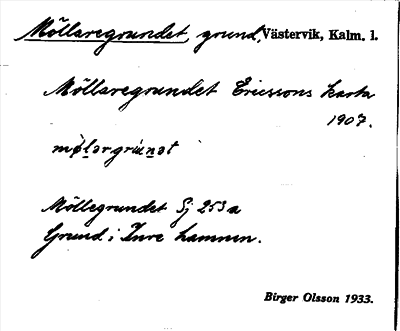 Möllaregrundet, grund, Västervik, Kalm. l.
Möllaregrundet Ericssons karta
1907.
mø̀l̠ərgrún̠ət
Möllegrundet Sj 253 a
Grund i Inre hamnen.
Birger Olsson 1933.